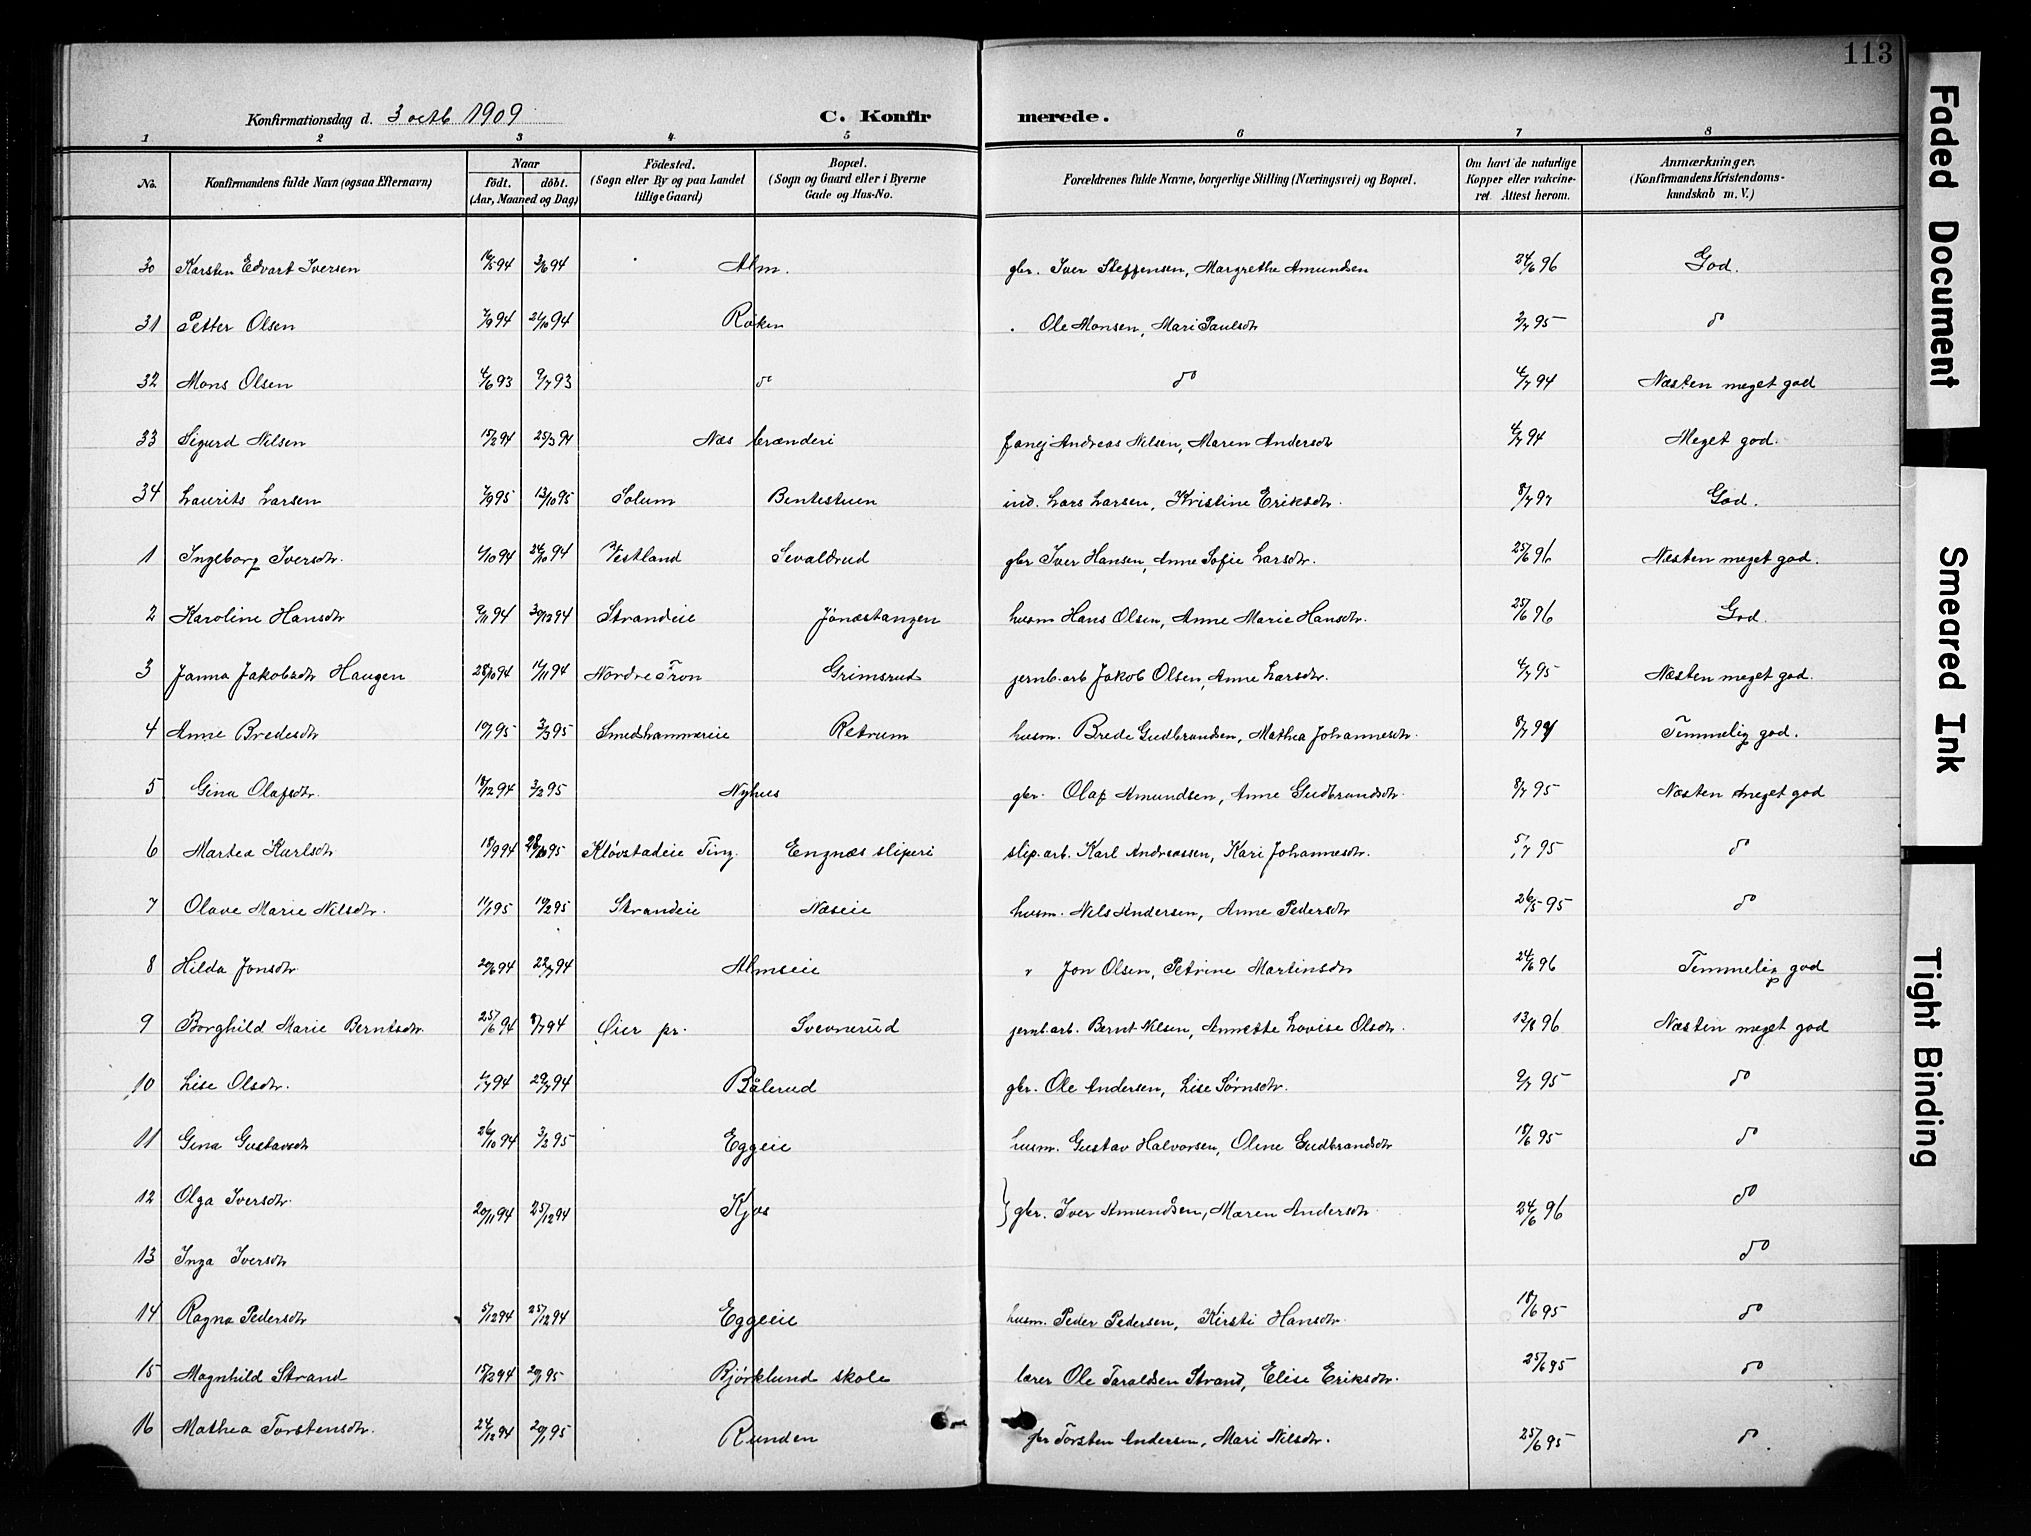 113
Konfirmationsdag d. 3 octb 1909
C. Konfirmerede.
1 2 3 4 5 6 7 8
No. Konfirmandens fulde Navn (ogsaa Efternavn) Naar födt. döbt. (Aar, Maaned og Dag) Födested. (Sogn eller By og paa Landet tillige Gaard) Bopæl. (Sogn og Gaard eller i Byerne Gade og Hus-No. Forældrenes fulde Navne, borgerlige Stilling (Næringsvei) og Bopæl. Om havt de naturlige Kopper eller vakcineret. Attest herom. Anmærkninger. (Konfirmandens Kristendomskundskab m. V.)
30 Karsten Edvart Iversen 16/5 94 3/6 94 Alm. gbr. Iver Steffensen, Margrethe Amundsen 24/6 96 God.
31 Petter Olsen 7/9 94 21/10 94 Røken Ole Monsen, Mari Paulsdtr 2/7 95 do
32 Mons Olsen 4/6 93 9/7 93 do do 4/7 94 Næsten meget god
33 Sigurd Nilsen 15/2 94 25/3 94 Næs brænderi Andreas Nilsen, Maren Andersdtr 4/7 94 Meget god.
34 Laurits Larsen 7/9 95 13/10 95 Solum Bentestuen ind. Lars Larsen, Kristine Eriksdtr. 8/7 97 God.
1 Ingeborg Iversdtr. 4/10 94 24/10 94 Vestland Sevaldrud gbr Iver Hansen, Anne Sofie Larsdtr. 25/6 96 Næsten meget god.
2 Karoline Hansdtr 9/11 94 30/12 94 Strandeie Jónastangen husm Hans Olsen, Anne Marie Hansdtr. 25/6 96 God.
3 Janna Jakobsdtr Haugen 28/10 94 14/11 94 Nordre Fron Grimsrud jernb.arb Jakob Olsen, Anne Larsdtr. 4/7 95 Næsten meget god.
4 Anne Bredesdtr 10/1 95 3/3 95 Smedshammereie Retrum husm. Brede Gudbrandsen, Mathea Johannesdtr. 8/7 97 Temmelig god.
5 Gina Olafsdtr. 18/12 94 3/2 95 Nyhus gbr. Olaf Amundsen, Anne Gudbrandsdtr. 8/7 95 Næsten meget god
6 Martea Karlsdtr 18/9 94 Kløvstadeie Ting. Engnæs sliperi slip.arb. Karl Andreassen, Kari Johannesdtr. 5/7 95 do
7 Olave Marie Nilsdtr. 11/1 95 10/2 95 Strandeie Næseie husm. Nils Andersen, Anne Pedersdtr 26/5 95 do
8 Hilda Jonsdtr 20/6 94 22/7 94 Almseie " Jon Olsen, Petrine Martinsdtr 24/6 96 Temmelig god
9 Borghild Marie Berntsdtr. 25/6 94 8/7 94 Øier pr. Svevnerud jernb.arb. Bernt Nilsen, Annette Lovise Olsdtr. 13/8 96 Næsten meget god
10 Lise Olsdtr. 29/7 94 Bålerud gbr. Ole Andersen, Lise Sørnsdtr. 9/7 95 do
11 Gina Gustavsdtr 26/10 94 3/2 95 Eggeie husm. Gustav Halvorsen, Oline Gudbrandsdtr 18/6 95 do
12 Olga Iversdtr. 20/11 94 25/12 94 Kjos gbr. Iver Amundsen, Maren Andersdtr. 24/6 96 do
13 Inga Iversdtr do
14 Ragna Pedersdtr 5/12 94 25/12 94 Eggeie husm. Peder Pedersen, Kirsti Hansdtr. 18/6 95 do
15 Magnhild Strand 15/12 94 20/1 95 Bjørklund skole lærer Ole Taraldsen Strand, Elise Eriksdtr. 25/6 95 do
16 Mathea Torstensdtr. 24/12 94 20/1 95 Runden gbr Torsten Andersen, Mari Nilsdtr. 25/6 95 do
Faded Document
Smeared Ink
Tight Binding